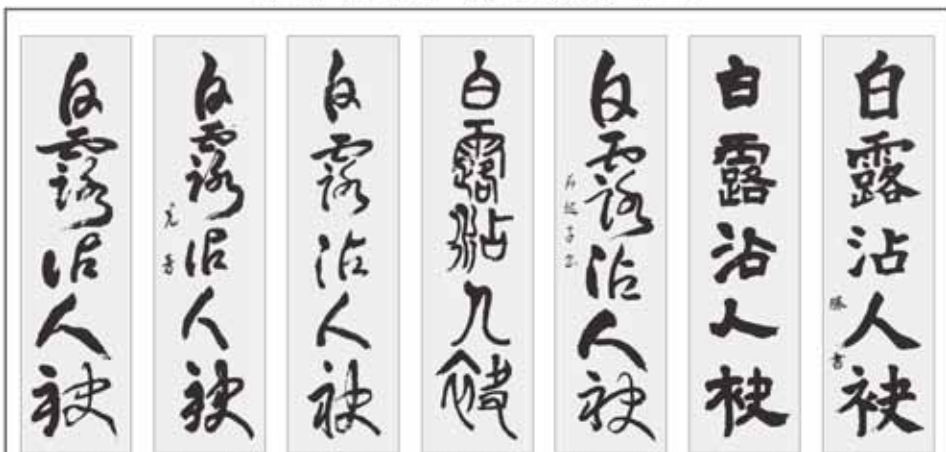 白露沾人袂
勝書
白露沾人袂
白露沾人袂
白露沾人袂
白露沾人袂
白露沾人袂
白露沾人袂